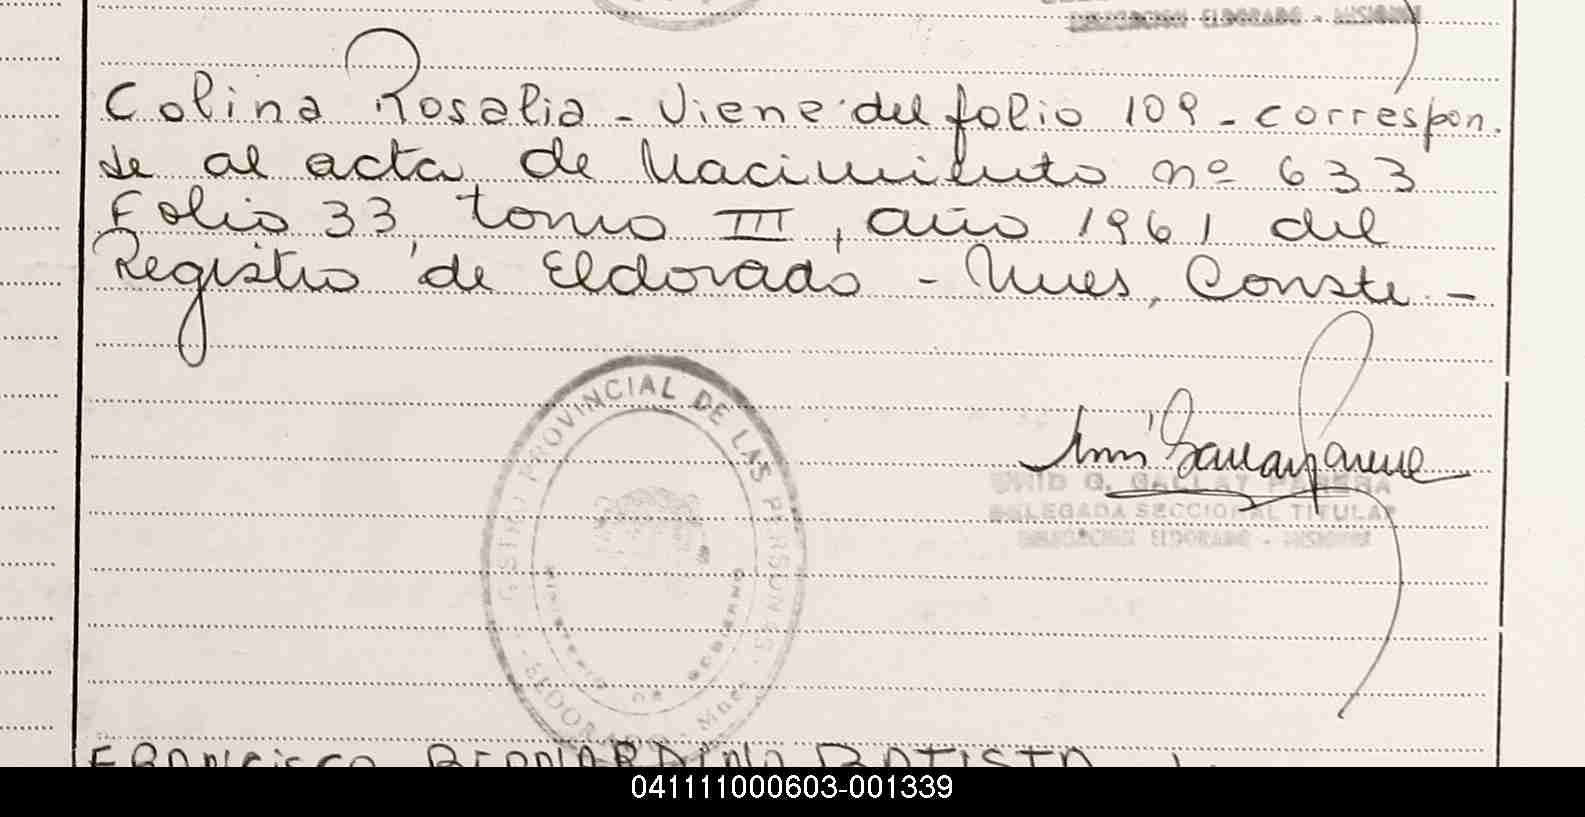 DELEGACION ELDORADO - MISIONES
Colina Rosalia - Viene del folio 109 - correspon.
de al acta de Nacimiento nº 633
Folio 33, tomo III, año 1961 del
Registro de Eldorado - Mnes, Conste. -
REGISTRO PROVINCIAL DE LAS PERSONAS
MINISTERIO DE GOBIERNO
ELDORADO - Mnes.
G. GALLAY PARERA
DELEGADA SECCIONAL TITULAR
DELEGACION ELDORADO - MISIONES
FRANCISCO BERNARDINO BATISTA
041111000603-001339